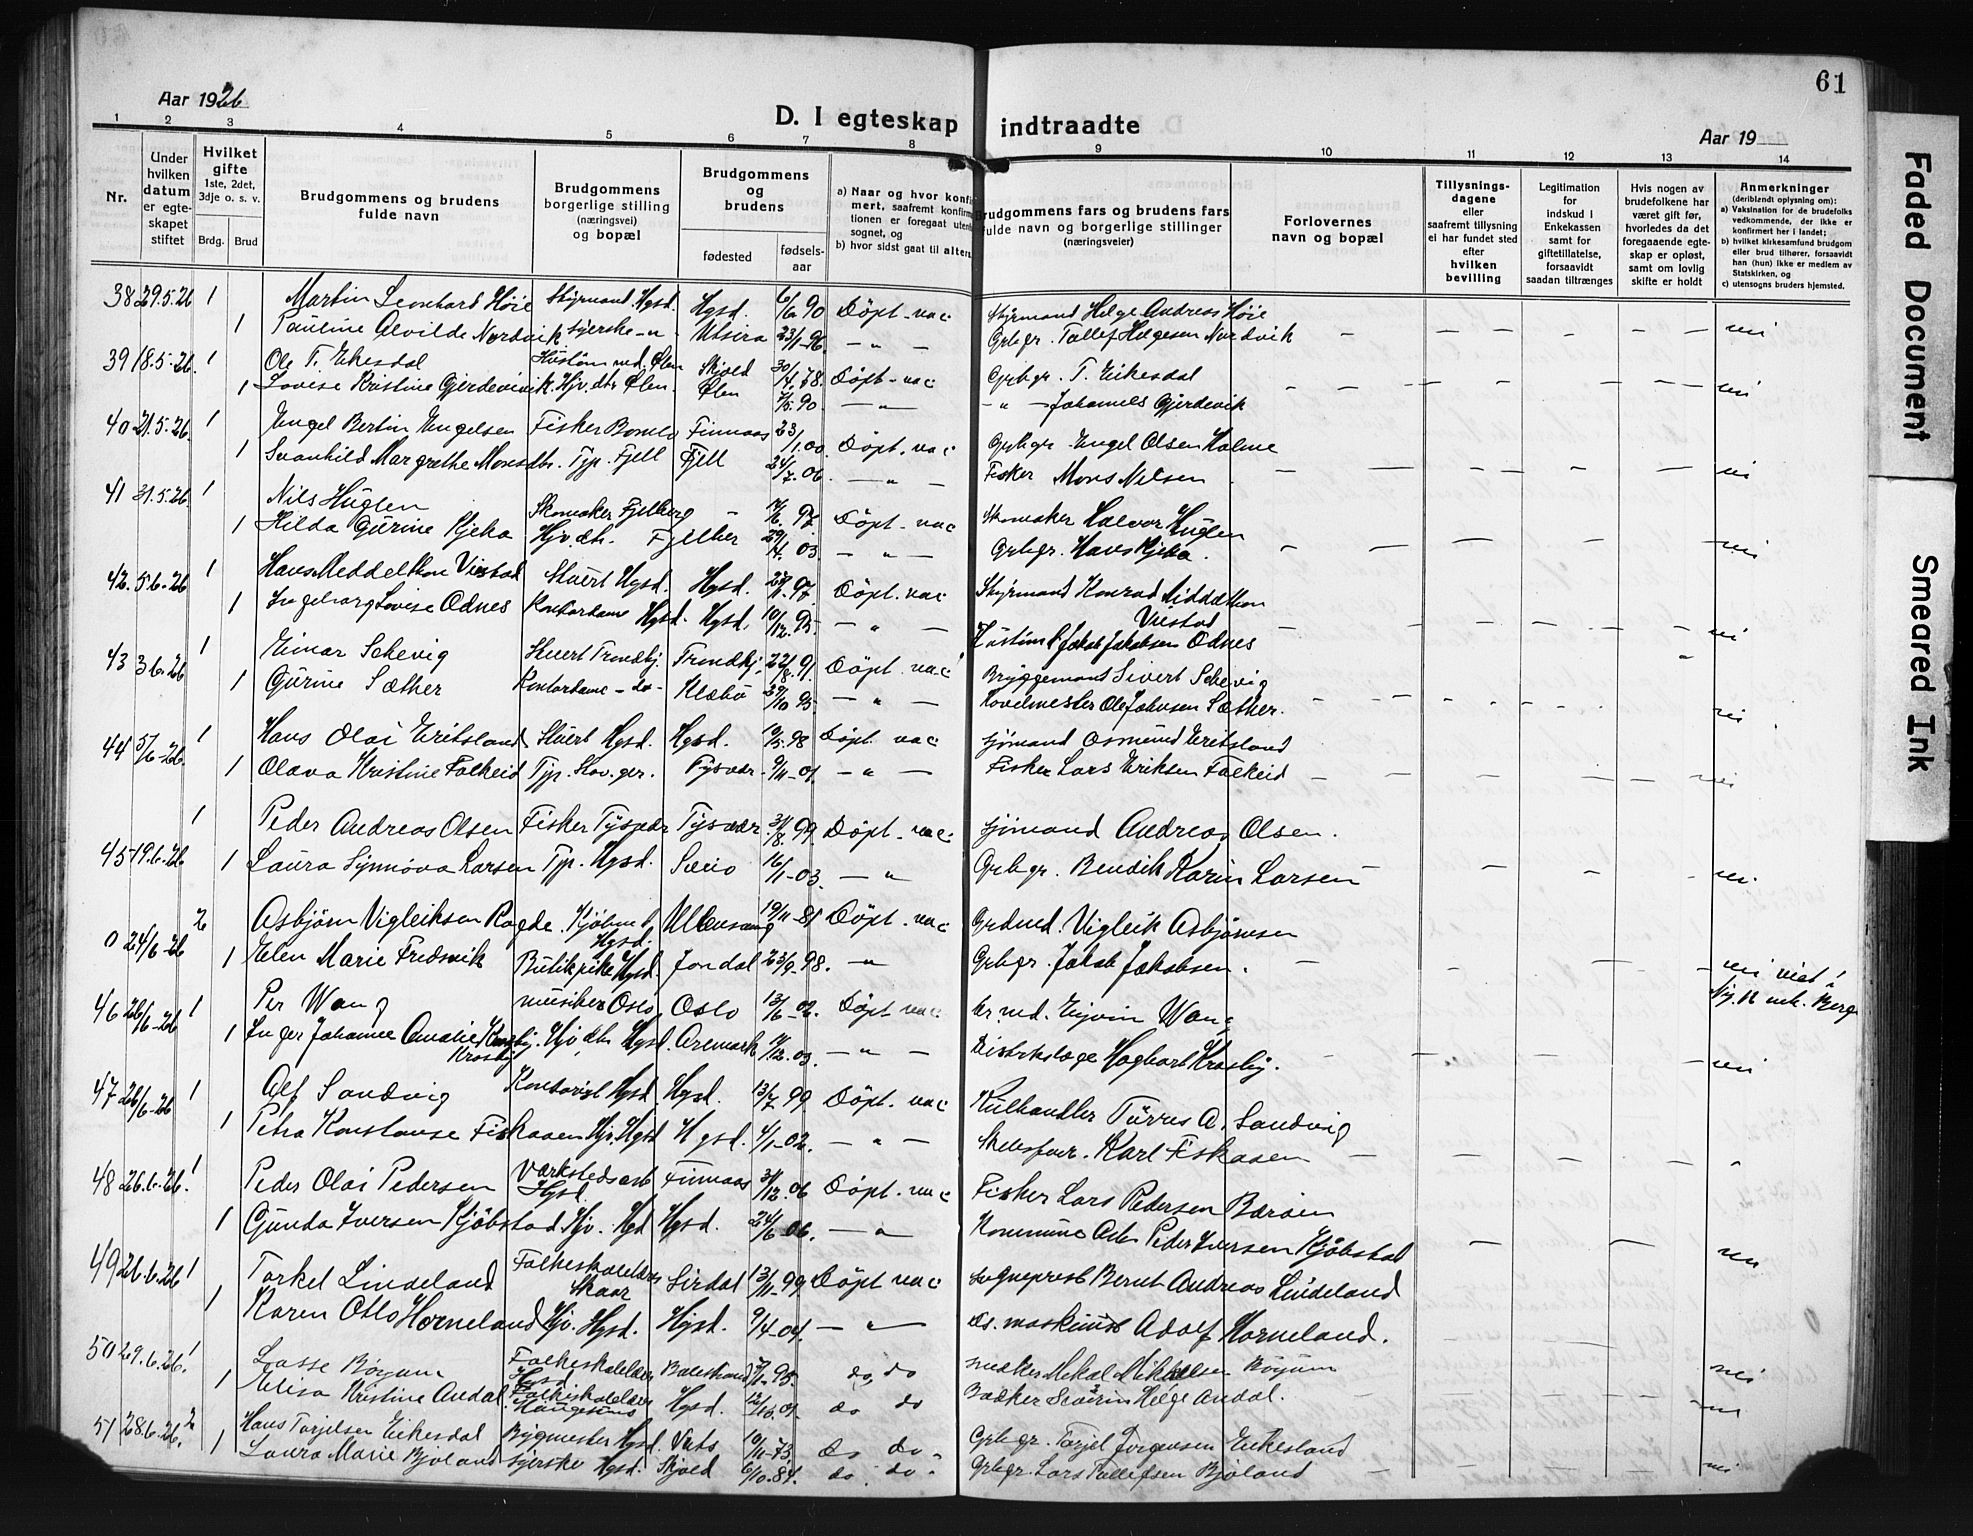 61
Aar 1926
D. I egteskap indtraadte
Aar 19
1 2 3 4 5 6 7 8 9 10 11 12 13 14
Nr.
Under hvilken datum er egteskapet stiftet
Hvilket gifte 1ste, 2det, 3dje o. s. v.
Brdg. Brud
Brudgommens og brudens fulde navn
Brudgommens borgerlige stilling (næringsvei) og bopæl
Brudgommens og brudens
fødested fødselsaar
a) Naar og hvor konfi
mert, saafremt konfirm
tionen er foregaat uten
sognet, og
b) hvor sidst gaat til alters
Brudgommens fars og brudens fars fulde navn og borgerlige stillinger (næringsveier)
Forlovernes navn og bopæl
Tillysningsdagene eller saafremt tillysning ei har fundet sted efter hvilken bevilling
Legitimation for indskud i Enkekassen samt for giftetillatelse, forsaavidt saadan tiltrænges
Hvis nogen av brudefolkene har været gift før, hvorledes da det foregaaende egteskap er opløst, samt om lovlig skifte er holdt
Anmerkninger (deriblandt oplysning om):
a) Vaksination for de brudefolks vedkommende, der ikke er konfirmert her i landet;
b) hvilket kirkesamfund brudgom eller brud tilhører, forsaavidt han (hun) ikke er medlem av Statskirken, og
c) utensogns bruders hjemsted.
38 29.5.26 1 Martin Leonhard Høie Styrmand Hgsd. Hgsd. 90 Döpt - vac Styrmand Helge Andreas Höie
1 Pauline Alvilde Nordvik syerske - " - Utsira 23/1-96 - " - Grbgr. Tollef Helgesen Nordvik - - - - - nei
39 18.5.26. 1 Ole T. Eikesdal Ølen Skjold 30/4.78. Döpt - vac Grbgr. T. Eikesdal
1 Lovise Kristine Gjerdevik. Hjv. dtr Ølen. Ølen 7/5.90 - " - - " - Johannes Gjerdevik - - - - - nei
40 21.5.26. 1 Engel Bertin Engelsen Fisker Bømlo Finnaas 23/1.00. Döpt. vac Grbgr. Engel Olsen Holme
1 Svanhild Margrethe Monsdtr. Tjp. Fjell Fjell 24/7.06. - " - Fisker Mons Nilsen - - - - - nei
41 31.5.26. 1 Nils Huglen Skomaker Fjelberg - 97. Döpt - vac Skomaker Halvor Huglen
1 Hilda Gurine Kjeka Hjv. dtr. Fjelber 29/4.03 - " - Grbgr. Hans Kjeka. - - - - - nei
42. 5.6.26 1 Hans Meddelthon Vistad Stuert Hgsd. Hgsd. 97. Döpt. vac Styrmand Konrad Middelthon Vistad
1 Ingeborg Lovise Odnes Kontordame Hgsd. Hgsd. 10/12.95. - " - Jakob Jakobsen Odnes - - - - - nei
43 3.6.26 1 Einar Schevig Stuert Trondhj. Trondhj. 22/8.91 Döpt. vac Bryggemand Sivert Schevig
1 Gurine Sæther Kontordame - do - Klæbo 29/10 95. - " - Ole Johnsen Sæther. - - - - - nei
44 5/6-26. 1 Hans Olai Eritsland Stuert Hgsd. Hgsd. 10/5.98 Döpt. vac Sjømand Osmund Eritsland
1 Olava Kristine Falkeid Tjp. Skv. ger. Tysvær 9/11-01. - " - Fisker Lars Eriksen Falkeid - - - - - nei
1 Peder Andreas Olsen Fisker Tysvær Tysvær 31/8.99 Döpt. vac Sjömand Andreas Olsen.
45 19.6.26 1 Laura Synnöva Larsen Tjp. Hgsd. Søeio 16/1-03. - " Grbgr. Bendik Karin Larsen - - - - nei.
0 24/6-26 2 Asbjørn Vigleiksen Rogde. Kjöbm. Hgsd. Ullensvang 19/11-81 Döpt. vac Grdmd. Vigleik Asbjönsen
1 Helen Marie Fredsvik Butikpike Hgsd. Jondal 23/9-98. - " Grbgr. Jakob Jakobsen. - - - - - nei viet i Ny. R. mk. Berg
46 26/6-26 1 Per Wang musiker Oslo Oslo 13/6-02. Döpt vac Eyvin Wang
1 Inger Johanne Amalie Krosby. Hjv. dtr Hgsd. Aremark 12.03. - " - Distrktslæge Hagbart Krosby. - - - - - nei
Krosby
47 26/6-26 1 Alf Sandvig Kontorist Hgsd. Hgsd. 13/7 99. Döpt. vac Kulhandler Turres A. Sandvig
1 Petra Konstanse Fiskaaen Hjv. Hgsd Hgsd. 4/1-02. - " - Karl Fiskaaen - - - - - "
48 26.6.26. 1 Peder Olai Pedersen Værkstedsarb Hgsd. Finnaas 31/12.06 Döpt. vac Fisker Lars Pedersen Baröen
1 Gunda Iversen Kjöbstad Hjv. Hgd Hgsd. 24/6-06. - " Kommune Arb. Peder Iversen Kjöbstad - - - - nei
49 26.6.26 1 Torkel Lindeland Folkeskolelærer Skaar Sirdal 13/11-99 Döpt vac Sogneprest Bernt Andreas Lindeland
1 Karen Otto Horneland Hjv. Hgsd. Hgsd. 9/4-04. - " - ds. maskinist Adolf Horneland.
50 29.6.26. 1 Lasse Böyum Folkeskolelærer Hgsd Balestrand 95. do, do snedker Mikal Mikkelsen Böyum nei
1 Elisa Kristine Andal. Folkeskolelærer Haugesund Hgsd. 12/10.01. do do Baker Severin Helge Andal. - - - nei
51 28.6.26. 2 Hans Torjelsen Eikesdal Bygmester Hgsd. Vats 10/11-73. do do Grbgr. Torjel Jørgensen Eikesland
1 Laura Marie Bjoland syerske Hgsd. Skjold 6/10.84. do. do Grbgr. Lars Tollefsen Bjoland - - - - - nei
Faded Document
Smeared Ink